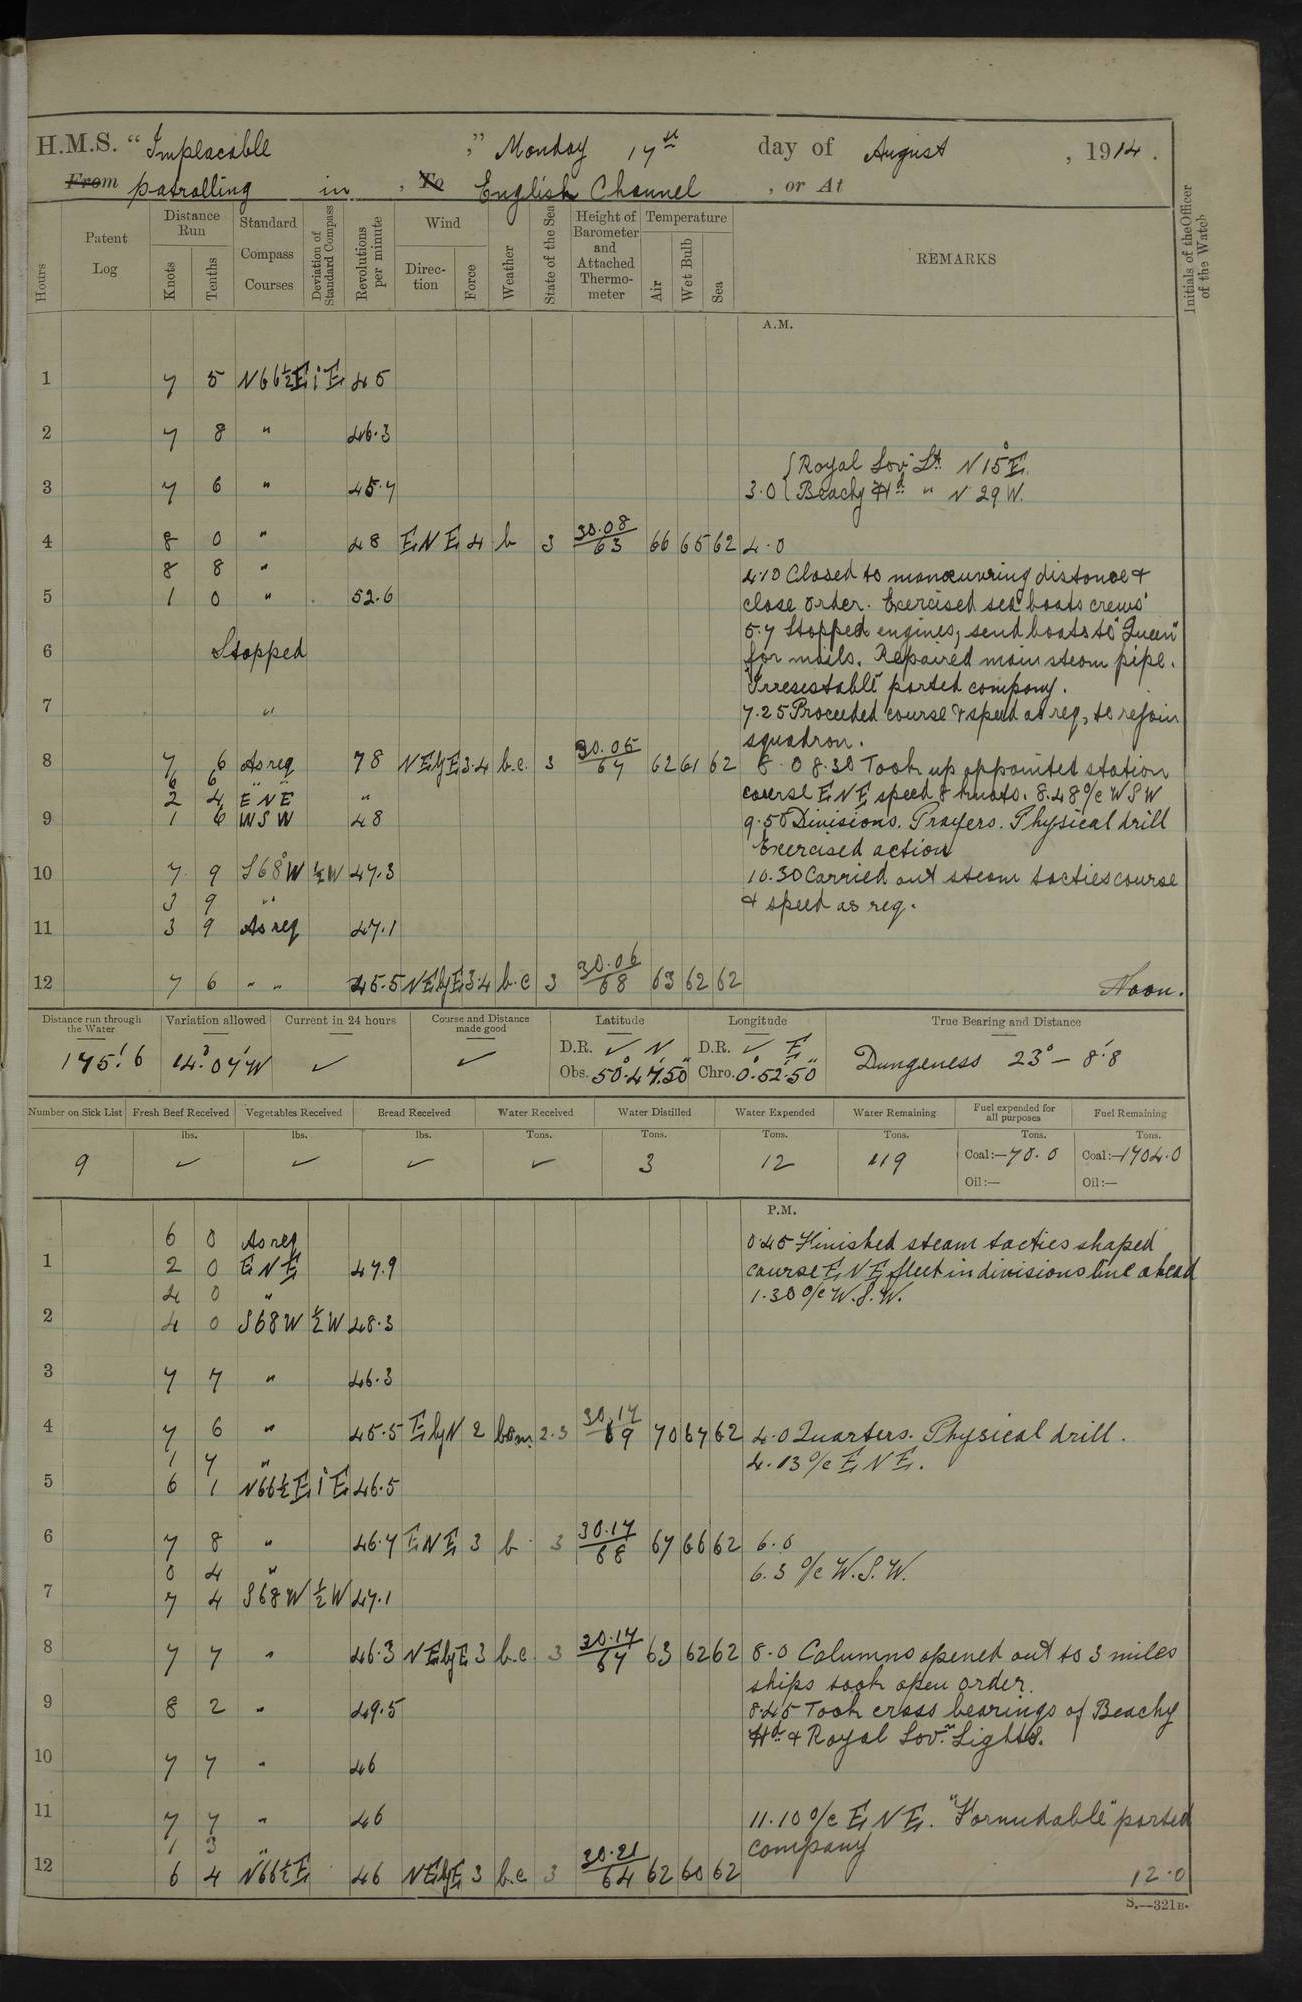 H.M.S. "Implacable " Monday 17th day of August , 1914.
From patrolling in , To English Channel , or At
Hours
Patent Log
Distance Run
Knots
Tenths
Standard Compass Courses
Deviation of Standard Compass
Revolutions per minute
Wind
Direction
Force
Weather
State of the Sea
Height of Barometer and Attached Thermometer
Temperature
Air
Wet Bulb
Sea
REMARKS
Initials of the Officer of the Watch
A.M.
1 7 5 N66½E 1°E 45
2 7 8 " 46.3
{Royal Sov Lt N 15°E.
3 7 6 " 45.7 3.0 {Beachy Hd " N 29 W.
4 8 0 " 48 ENE 4 b 3 30.08/63 66 65 62 4.0
8 8 " 4.10 Closed to manœuvring distance &
5 1 0 " 52.6 close order. Exercised sea boats crews'
5.7 Stopped engines, send boats to "Queen"
6 Stopped for mails. Repaired main steam pipe.
"Irresestable" parted company.
7 " 7.25 Proceeded course & speed as req, to rejoin
squadron.
8 7 6 As req 78 NEbyE 3.4 b.c. 3 30.05/67 62 61 62 8.0 8.30 Took up appointed station
6 6 "
2 4 ENE " course ENE speed 8 knots. 8.48 a/c WSW
9 1 6 WSW 48 9.50 Divisions. Prayers. Physical drill
Exercised action
10 7 9 S68°W ½W 47.3 10.30 Carried out steam tactics course
3 9 " & speed as req.
11 3 9 As req 47.1
12 7 6 " " 45.5 NEbyE 3.4 b.c 3 30.06/68 63 62 62 Noon.
Distance run through the Water Variation allowed Current in 24 hours Course and Distance made good Latitude Longitude True Bearing and Distance
175.6 14°.07'W ✓ ✓ D.R. ✓ N D.R. ✓ E Dungeness 23° — 8.8
Obs. 50°.47'.50" Chro. 0°.52'.50"
Number on Sick List Fresh Beef Received Vegetables Received Bread Received Water Received Water Distilled Water Expended Water Remaining Fuel expended for all purposes Fuel Remaining
lbs. lbs. lbs. Tons. Tons. Tons. Tons. Tons. Tons.
9 ✓ ✓ ✓ ✓ 3 12 119 Coal:—70.0 Coal:—1704.0
Oil:— Oil:—
P.M.
6 0 As req 0.45 Finished steam tactics shaped
1 2 0 ENE 47.9 course ENE fleet in divisions line ahead
4 0 " 1.30 a/c W.S.W.
2 4 0 S68W ½W 48.3
3 7 7 " 46.3
4 7 6 " 45.5 EbyN 2 bcm. 2.3 30.17/69 70 67 62 4.0 Quarters. Physical drill.
1 7 " 4.13 a/c ENE.
5 6 1 N66½E 1°E 46.5
6 7 8 " 46.7 ENE 3 b. 3 30.17/68 67 66 62 6.0
0 4 " 6.3 a/c W.S.W.
7 7 4 S68W ½W 47.1
8 7 7 " 46.3 NEbyE 3 b.c. 3 30.17/67 63 62 62 8.0 Columns opened out to 3 miles
ships took open order.
9 8 2 " 49.5 8.45 Took cross bearings of Beachy
Hd & Royal Sovn Lights.
10 7 7 " 46
11 7 7 " 46 11.10 a/c ENE. "Formidable" parted
1 3 " company
12 6 4 N66½E 46 NEbyE 3 b.c 3 30.21/64 62 60 62 12.0
S.—321B.